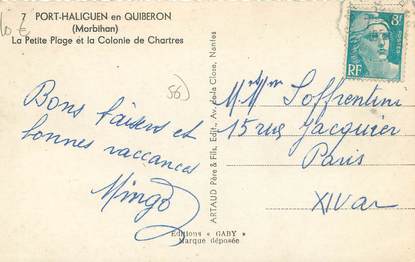 7 PORT-HALIGUEN en QUIBERON
(Morbihan)
La Petite Plage et la Colonie de Chartres
10 €
56)
Bons baisers et
bonnes vaccances
Mingo
ARTAUD Père & Fils, Edit., Av. de-la Close, Nantes
Editions « GABY »
Marque déposée
8F
POSTES
RF
M. Mme Soffrentini
15 rue Jacquier
Paris
XIV ar